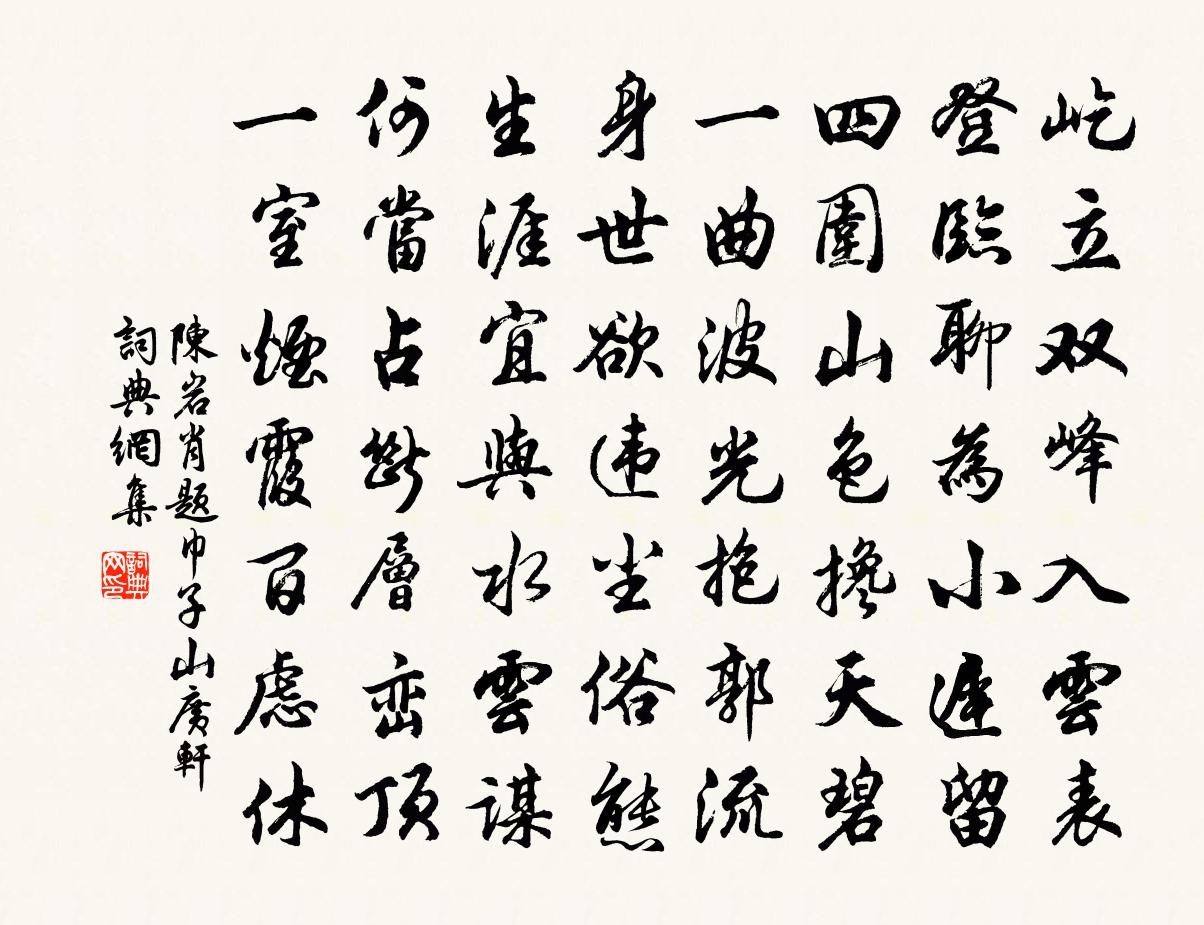 屹立双峰入雲表
登臨聊為小遲留
四圍山色攙天碧
一曲波光抱郭流
身世欲违尘俗態
生涯宜與水雲謀
何當占斷層峦頂
一室煙霞百慮休
陳岩肖題巾子山廣軒
詞典網集
詞典网印